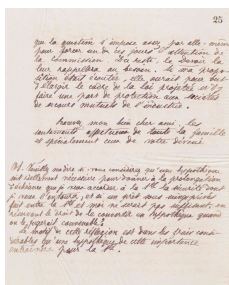 25
que la question s'impose assez par elle-même
pour forcer un de ces jours l'attention de
la commission. Du reste, le Devoir la
leur rappellera au besoin. Si ma propo-
sition était écoutée elle aurait pour but
d'élargir le cadre de la loi projetée et d'y
faire une part de protection aux sociétés
de secours mutuels de l'industrie.
Trouvez mon bien cher ami, les
sentiments affectueux de toute la famille
et spécialement ceux de votre dévoué
P.S. Veuillez me dire si vous considérez qu'une hypothèque
est tellement nécessaire pour donner à la prolongation
d'échéance que je veux accorder à la Sté la sécurité dont
je veux l'entourer, et si un prêt sous seing privé
fait entre la Sté et moi ne serait pas suffisant en
réservant le droit de le convertir en hypothèque quand
on le jugerait convenable.
Le motif de cette réflexion est dans les frais consi-
dérables qu'une hypothèque de cette importance
entraîne pour la Sté.